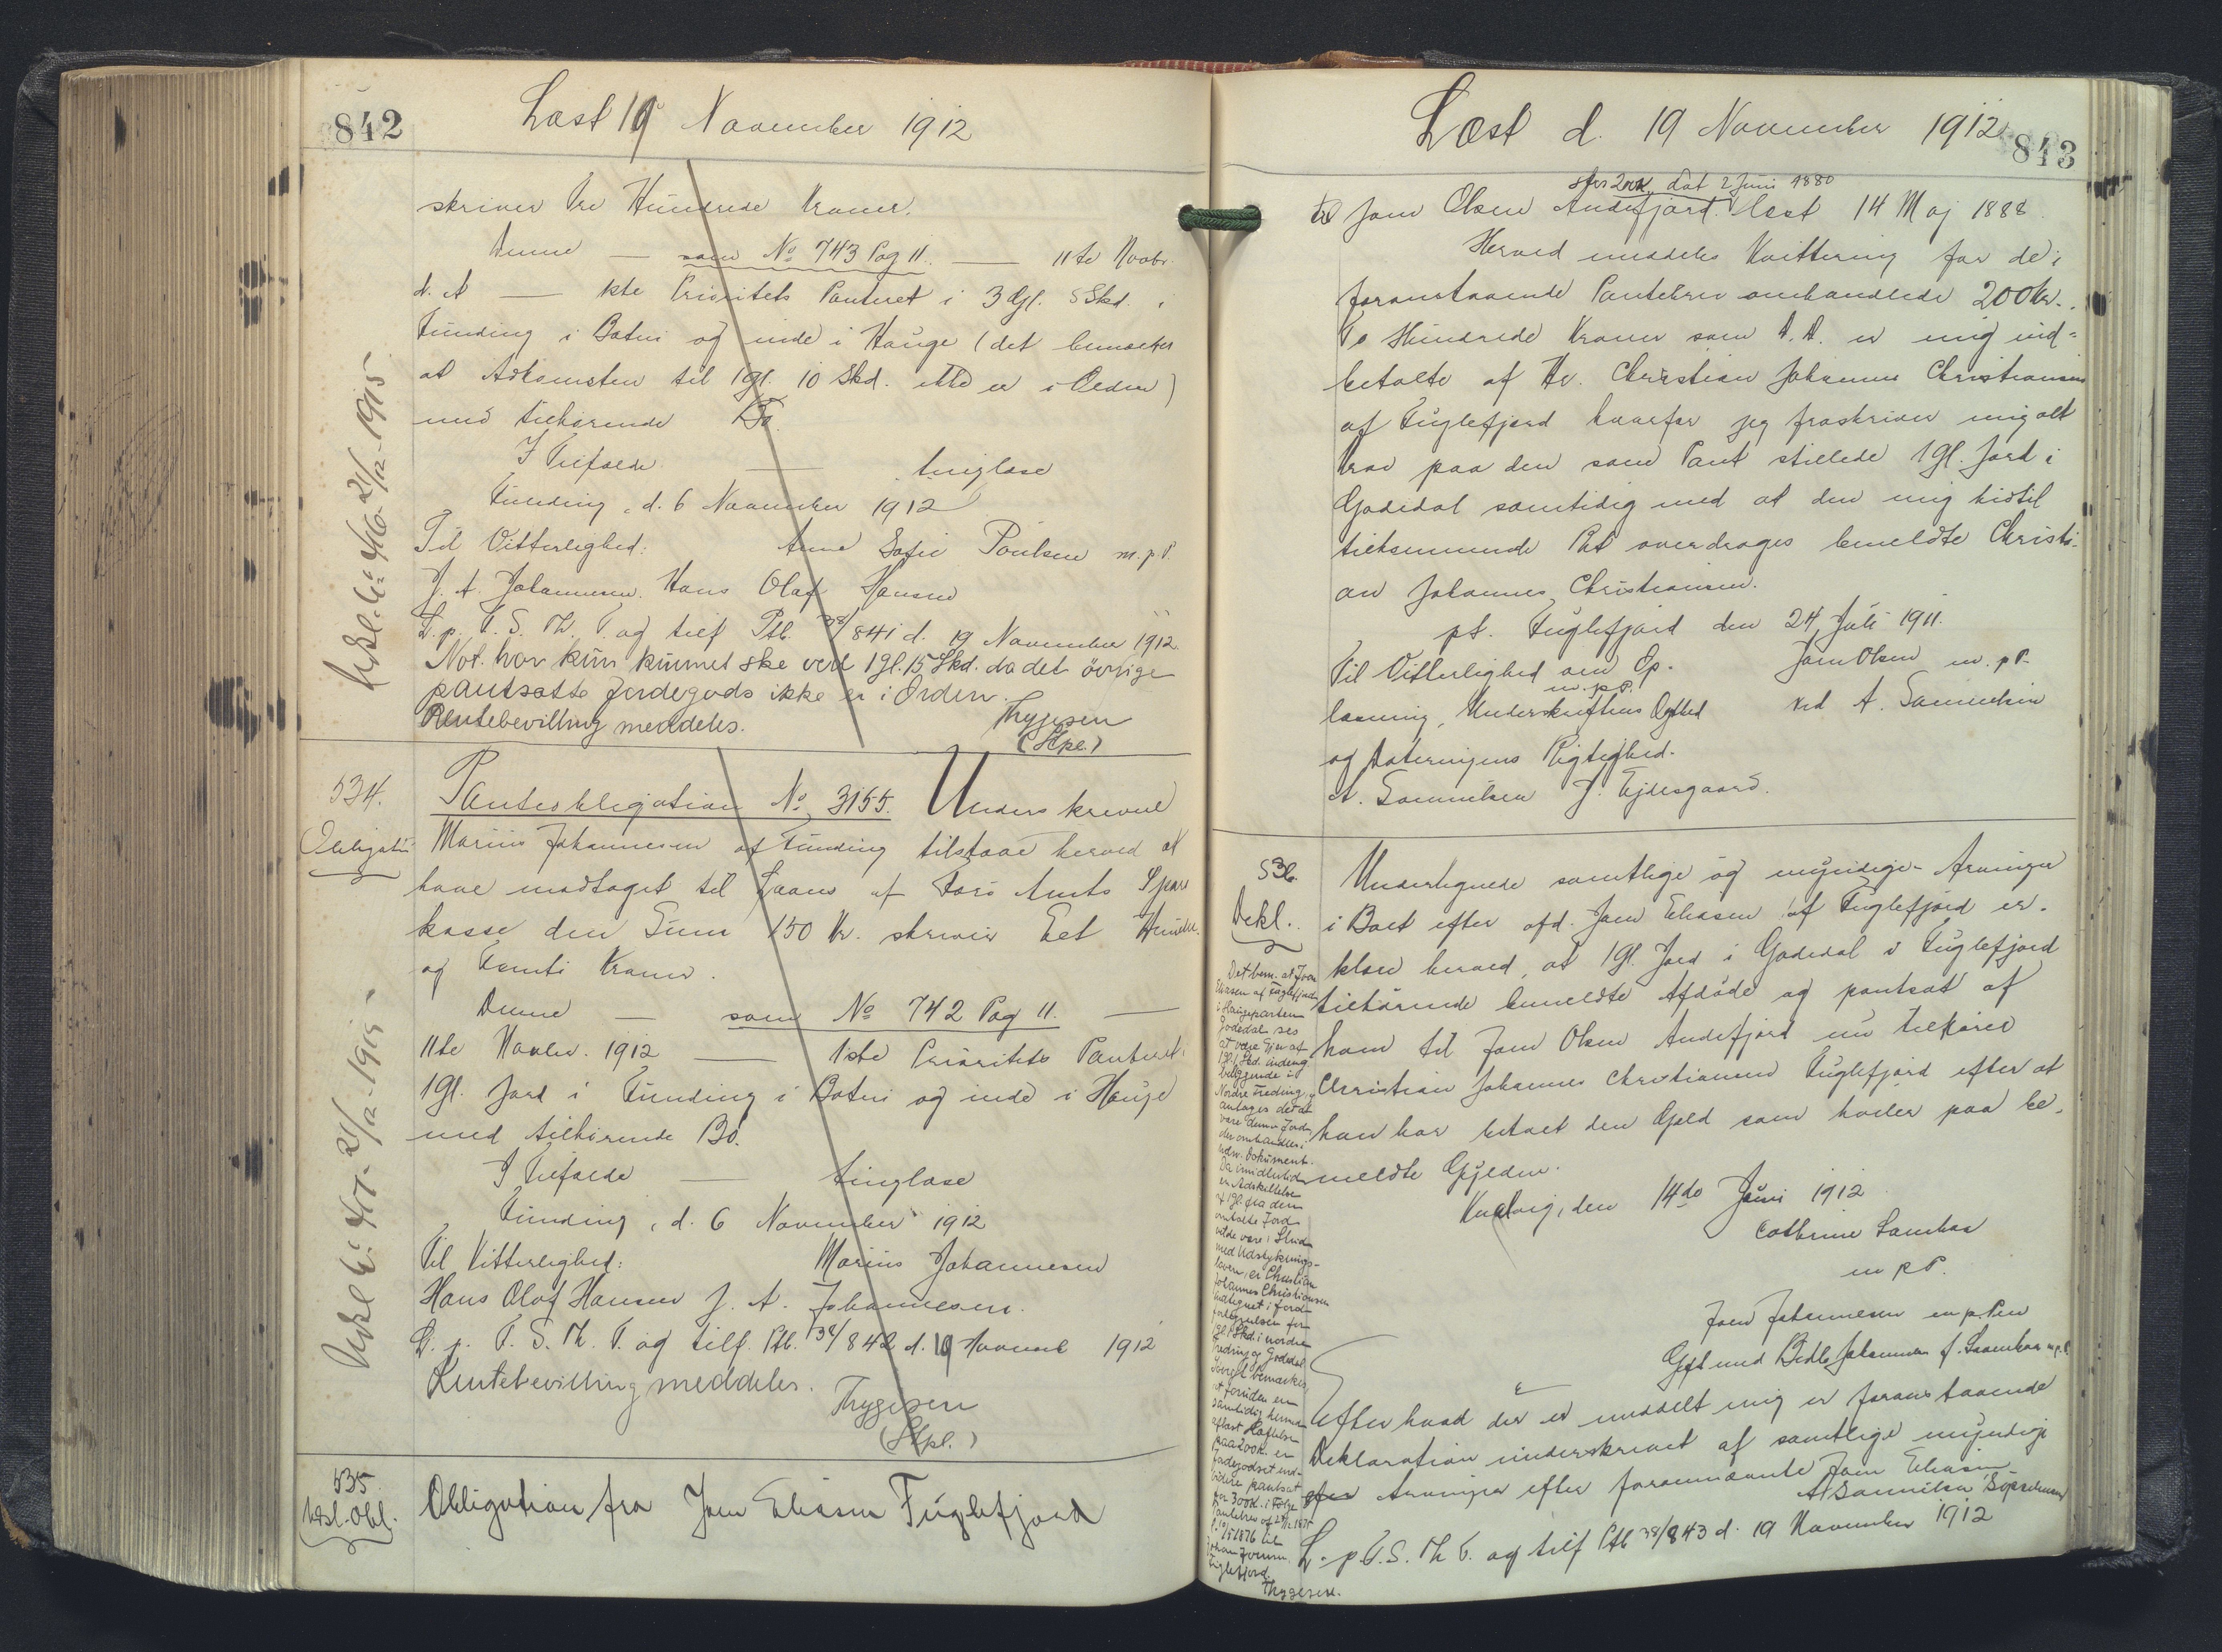 842
Læst 19 November 1912
skriver Tre Hundrede Kroner.
Denne — som No 743 Pag 11. — 11te Novbr.
d. A — 1ste Prioritets Panteret i 3 Gl. 5 Skd. i
Funding i Botni og inde i Hauge (det bemærkes
at Adkomsten til 1 gl. 10 Skd. ikke er i Orden)
med tilhørende Bø.
I Tilfælde — tinglæse
Funding, d. 6 November 1912
Til Vitterlighed: Anne Sofie Poulsen m.p.P.
J. A. Johannesen. Hans Olaf Hansen
L. p. F. S. Th. T. og tilf Ptb. 38/841 d. 19 November 1912.
Not. har kun kunnet ske ved 1 gl. 15 Skd. da det øvrige
pantsatte Jordegods ikke er i Orden.
Rentebevilling meddeles. Thygesen
(Skpl.)
Udsl. Ptb. 21/12-1915.
534.
Obligation
Panteobligation No 3155. Underskrevne
Marius Johannesen af Funding tilstaar herved at
have modtaget til Laans af Færø Amts Spare
kasse den Sum 150 Kr. skriver Eet Hundrede
og Femti Kroner.
Denne — som No 742 Pag 11. —
11te Novbr. 1912 — 1ste Prioritets Panteret i
1 Gl. Jord i Funding i Botni og inde i Hauge
med tilhørende Bø.
I Tilfælde — tinglæse
Funding, d. 6 November 1912
Til Vitterlighed: Marius Johannesen
Hans Olaf Hansen J. A. Johannesen.
L. p. F. S. Th. T. og tilf. Ptb. 38/842 d. 19 Novemb 1912
Rentebevilling meddeles. Thygesen
(Skpl.)
21/12-1915
535.
Udsl. Obl.
Obligation fra Joen Eliasen Fuglefjord
Læst d. 19 November 1912
843
stor 200K dat 2 Juni 1880
til Joen Olsen Andefjord. læst 14 Maj 1888.
Herved meddeles Kvittering for de i
foranstaaende Pantebrev omhandlede 200 Kr.
To Hundrede Kroner som D. D. er mig ind-
betalte af Hr. Christian Johannes Christiansen
af Fuglefjord hvorfor jeg fraskriver mig alt
Krav paa den som Pant stillede 1 Gl. Jord i
Gødidal samtidig med at den mig hidtil
tilkommende Ret overdrages bemeldte Christi-
an Johannes Christiansen.
pt. Fuglefjord den 24 Juli 1911.
Til Vitterlighed om Op- Joen Olsen m. p. P.
m. p. P.
læsning, Underskriftens Ægthed ved A. Samuelsen
og Dateringens Rigtighed.
A. Samuelsen J. Ejdesgaard.
536.
Dekl.
Undertegnede samtlige og myndige Arvinger
i Boet efter afd. Joen Eliasen af Fuglefjord er-
klære herved, at 1 Gl. Jord i Gødidal i Fuglefjord
tilhørende bemeldte Afdøde og pantsat af
ham til Joen Olsen Andefjord nu tilhører
Christian Johannes Christiansen Fuglefjord efter at
han har betalt den Gjæld som hviler paa be-
meldte Gylden.
den 14de Juni 1912
Cathrine Samhaa
m p P.
Joen Johannesen m. p. Pen
Gift med Johannesen f. Samhaa m. p. P.
Efter hvad der er meddelt mig er foranstaaende
Deklaration underskrevet af samtlige myndige
Arvinger efter forannævnte Joen Eliasen
A Samuelsen Sysselmand
L. p. F. S. Th T. og tilf Ptb 38/843 d. 19 November 1912
Det bem. at Joen
Eliasen af Fuglefjord
i Haugeparten
Gødedal ses
at være Ejer af
1 gl. 1 Skd. indeng
beliggende i
Nordre Trøding, og
antages det at
være denne Jord,
der omhandles i
Dokument.
Da imidlertid
en Adskillelse
af 1 gl. fra den
omtalte Jord
vilde være i Strid
med Udstyknings-
loven, er Christian
Johannes Christiansen
indtegnet i Jord-
fortegnelsen for
1 gl. 1 Skd. i nordre
Trøding og Gødedal.
Iøvrigt bemærkes,
at foruden en
samtidig hermed
aflæst Hæftelse
paa 200K. er
Jordegodset end-
videre pantsat
for 300K. i Følge
Pantebrev af
1876 til
Johan Joensen.
Fuglefjord.
Thygesen.